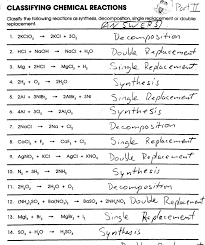 Part II
CLASSIFYING CHEMICAL REACTIONS
Classify the following reactions as synthesis, decomposition, single replacement or double
replacement. (ANSWERS)
1. 2KClO₃ → 2KCl + 3O₂ Decomposition
2. HCl + NaOH → NaCl + H₂O Double Replacement
3. Mg + 2HCl → MgCl₂ + H₂ Single Replacement
4. 2H₂ + O₂ → 2H₂O Synthesis
5. 2Al + 3NiBr₂ → 2AlBr₃ + 3Ni Single Replacement
6. 4Al + 3O₂ → 2Al₂O₃ Synthesis
7. 2NaCl → 2Na + Cl₂ Decomposition
8. CaCl₂ + F₂ → CaF₂ + Cl₂ Single Replacement
9. AgNO₃ + KCl → AgCl + KNO₃ Double Replacement
10. N₂ + 3H₂ → 2NH₃ Synthesis
11. 2H₂O₂ → 2H₂O + O₂ Decomposition
12. (NH₄)₂SO₄ + Ba(NO₃)₂ → BaSO₄ + 2NH₄NO₃ Double Replacement
13. MgI₂ + Br₂ → MgBr₂ + I₂ Single Replacement
14. SO₃ + H₂O → H₂SO₄ Synthesis